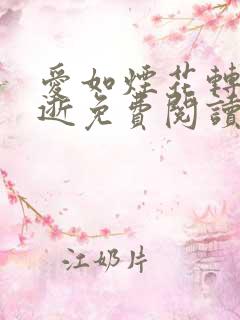 愛如煙花轉
逝免費閱讀
江奶片